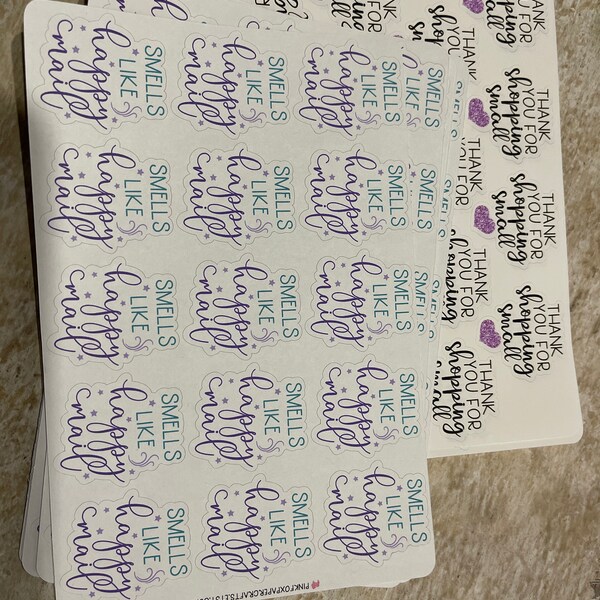 SMELLS
LIKE
happy
mail
SMELLS
LIKE
happy
mail
SMELLS
LIKE
happy
mail
SMELLS
LIKE
happy
mail
SMELLS
LIKE
happy
mail
SMELLS
LIKE
happy
mail
SMELLS
LIKE
happy
mail
SMELLS
LIKE
happy
mail
SMELLS
LIKE
happy
mail
SMELLS
LIKE
happy
mail
SMELLS
LIKE
happy
mail
SMELLS
LIKE
happy
mail
SMELLS
LIKE
happy
mail
SMELLS
LIKE
happy
mail
SMELLS
LIKE
happy
mail
PINKFOXPAPERCRAFTS.ETSY.CO
THANK
YOU FOR
shopping
small
THANK
YOU FOR
shopping
small
THANK
YOU FOR
shopping
small
THANK
YOU FOR
shopping
small
THANK
YOU
shop
THANK
YOU FOR
THANK
YOU FOR
shopping
small
THANK
shopping
small